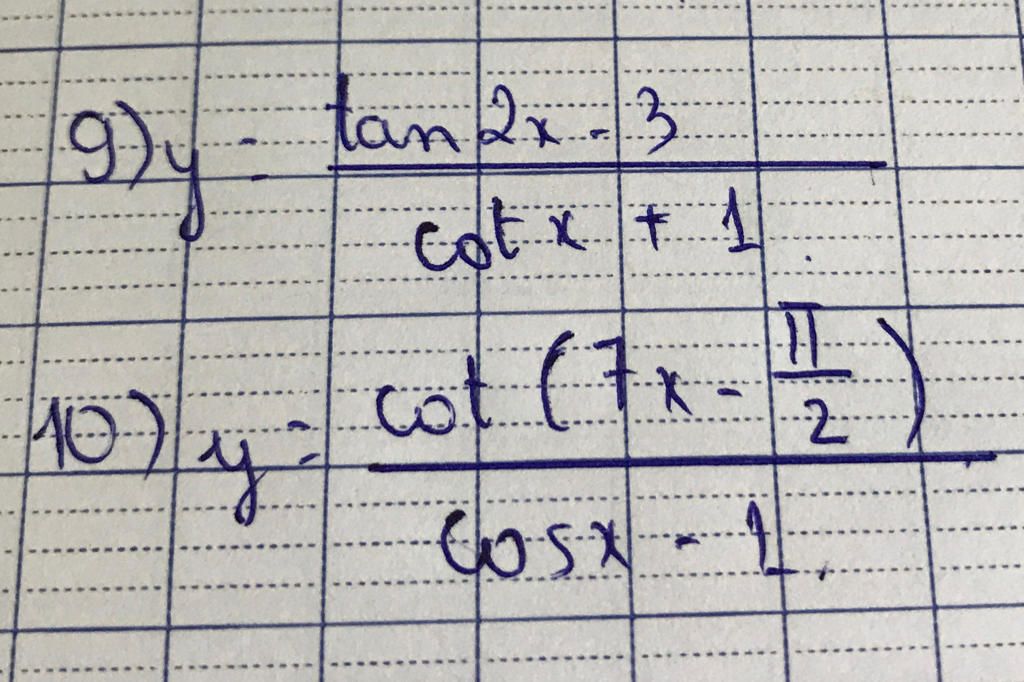 9) y = \frac{tan 2x - 3}{cot x + 1}.
10) y = \frac{cot (7x - \frac{π}{2})}{cos x - 1}.